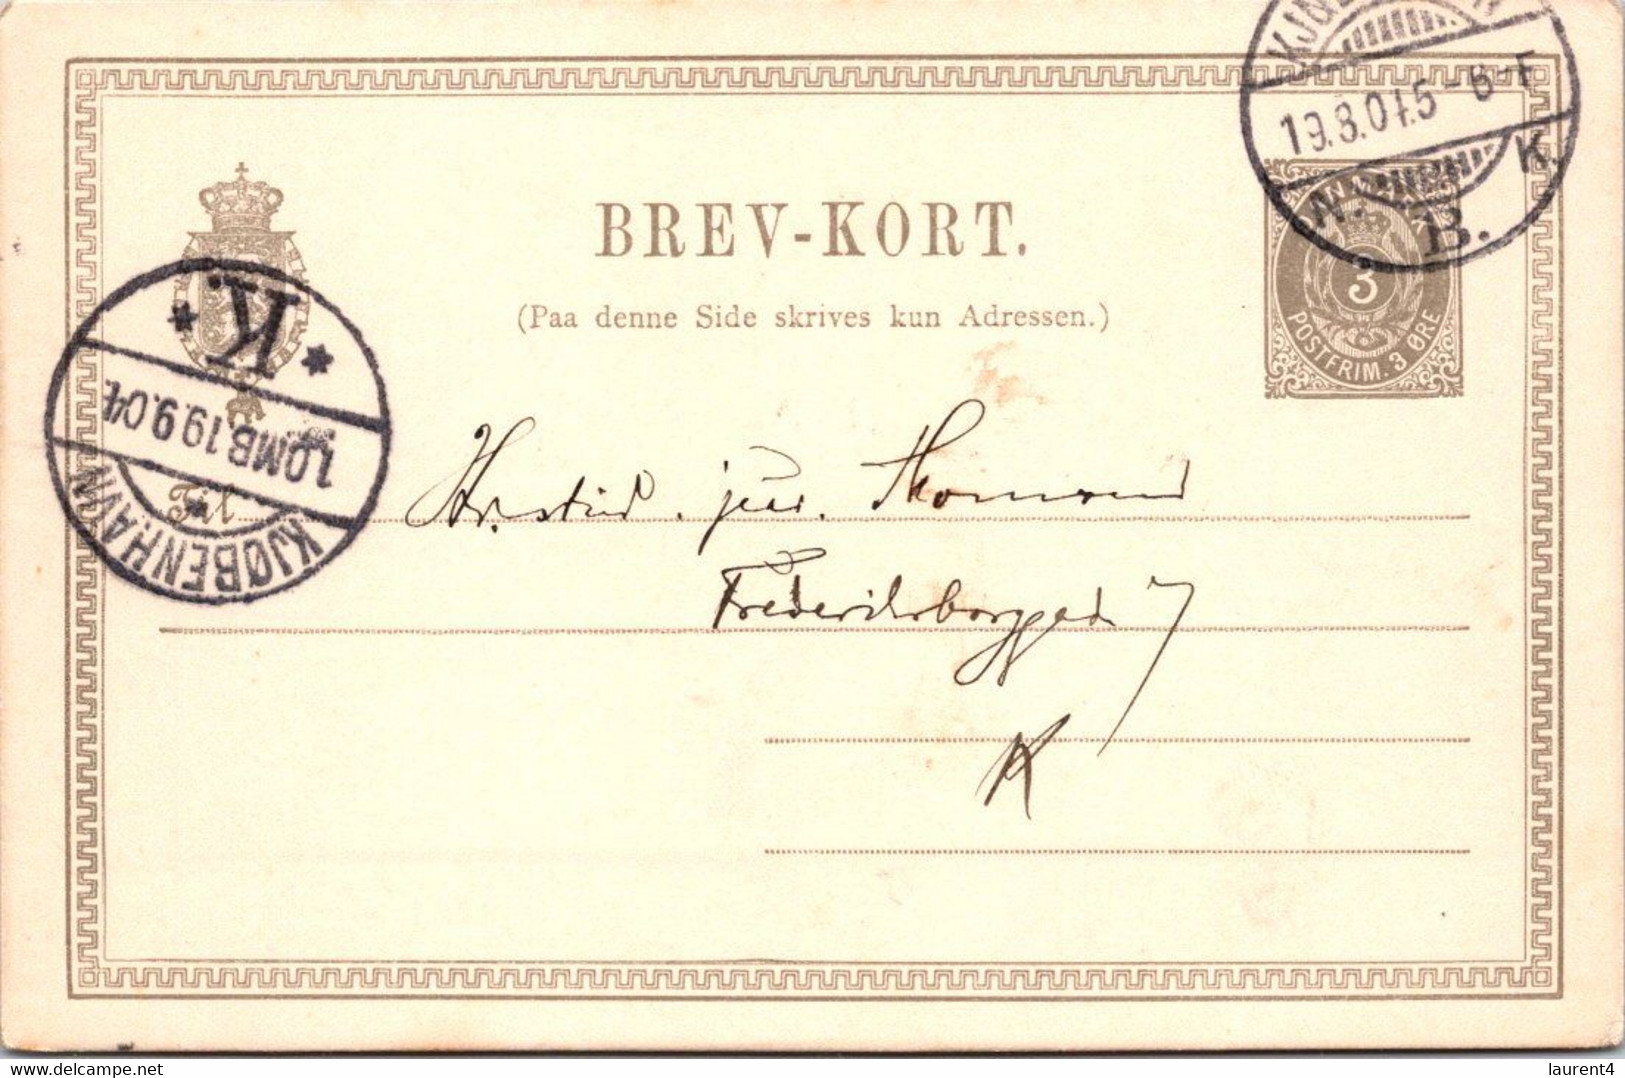 KJØBENHAVN
19.8.04. 5-6 F
N. B. K.
BREV-KORT.
(Paa denne Side skrives kun Adressen.)
3
POSTFRIM. 3 ØRE
K.
1.OMB. 19.9.04
KJØBENHAVN
Til
Hr. stud. jur. Thomsen
Frederiksborggade 7
K
delcampe.net
laurent4